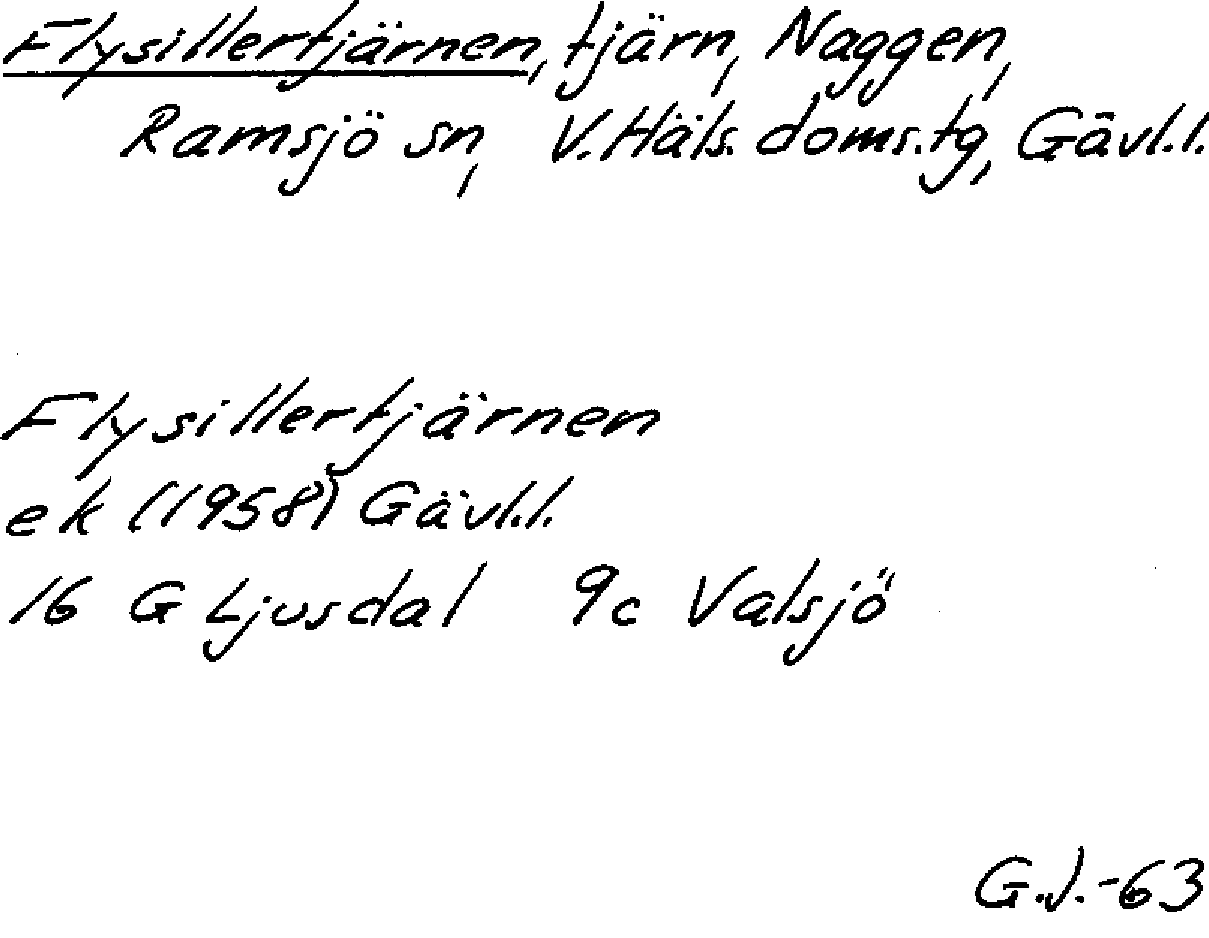 Flysillertjärnen, tjärn, Naggen,
Ramsjö sn, V. Häls. doms.tg, Gävl.l.
Flysillertjärnen
ek (1958) Gävl.l.
16 G Ljusdal 9c Valsjö
G.J.-63